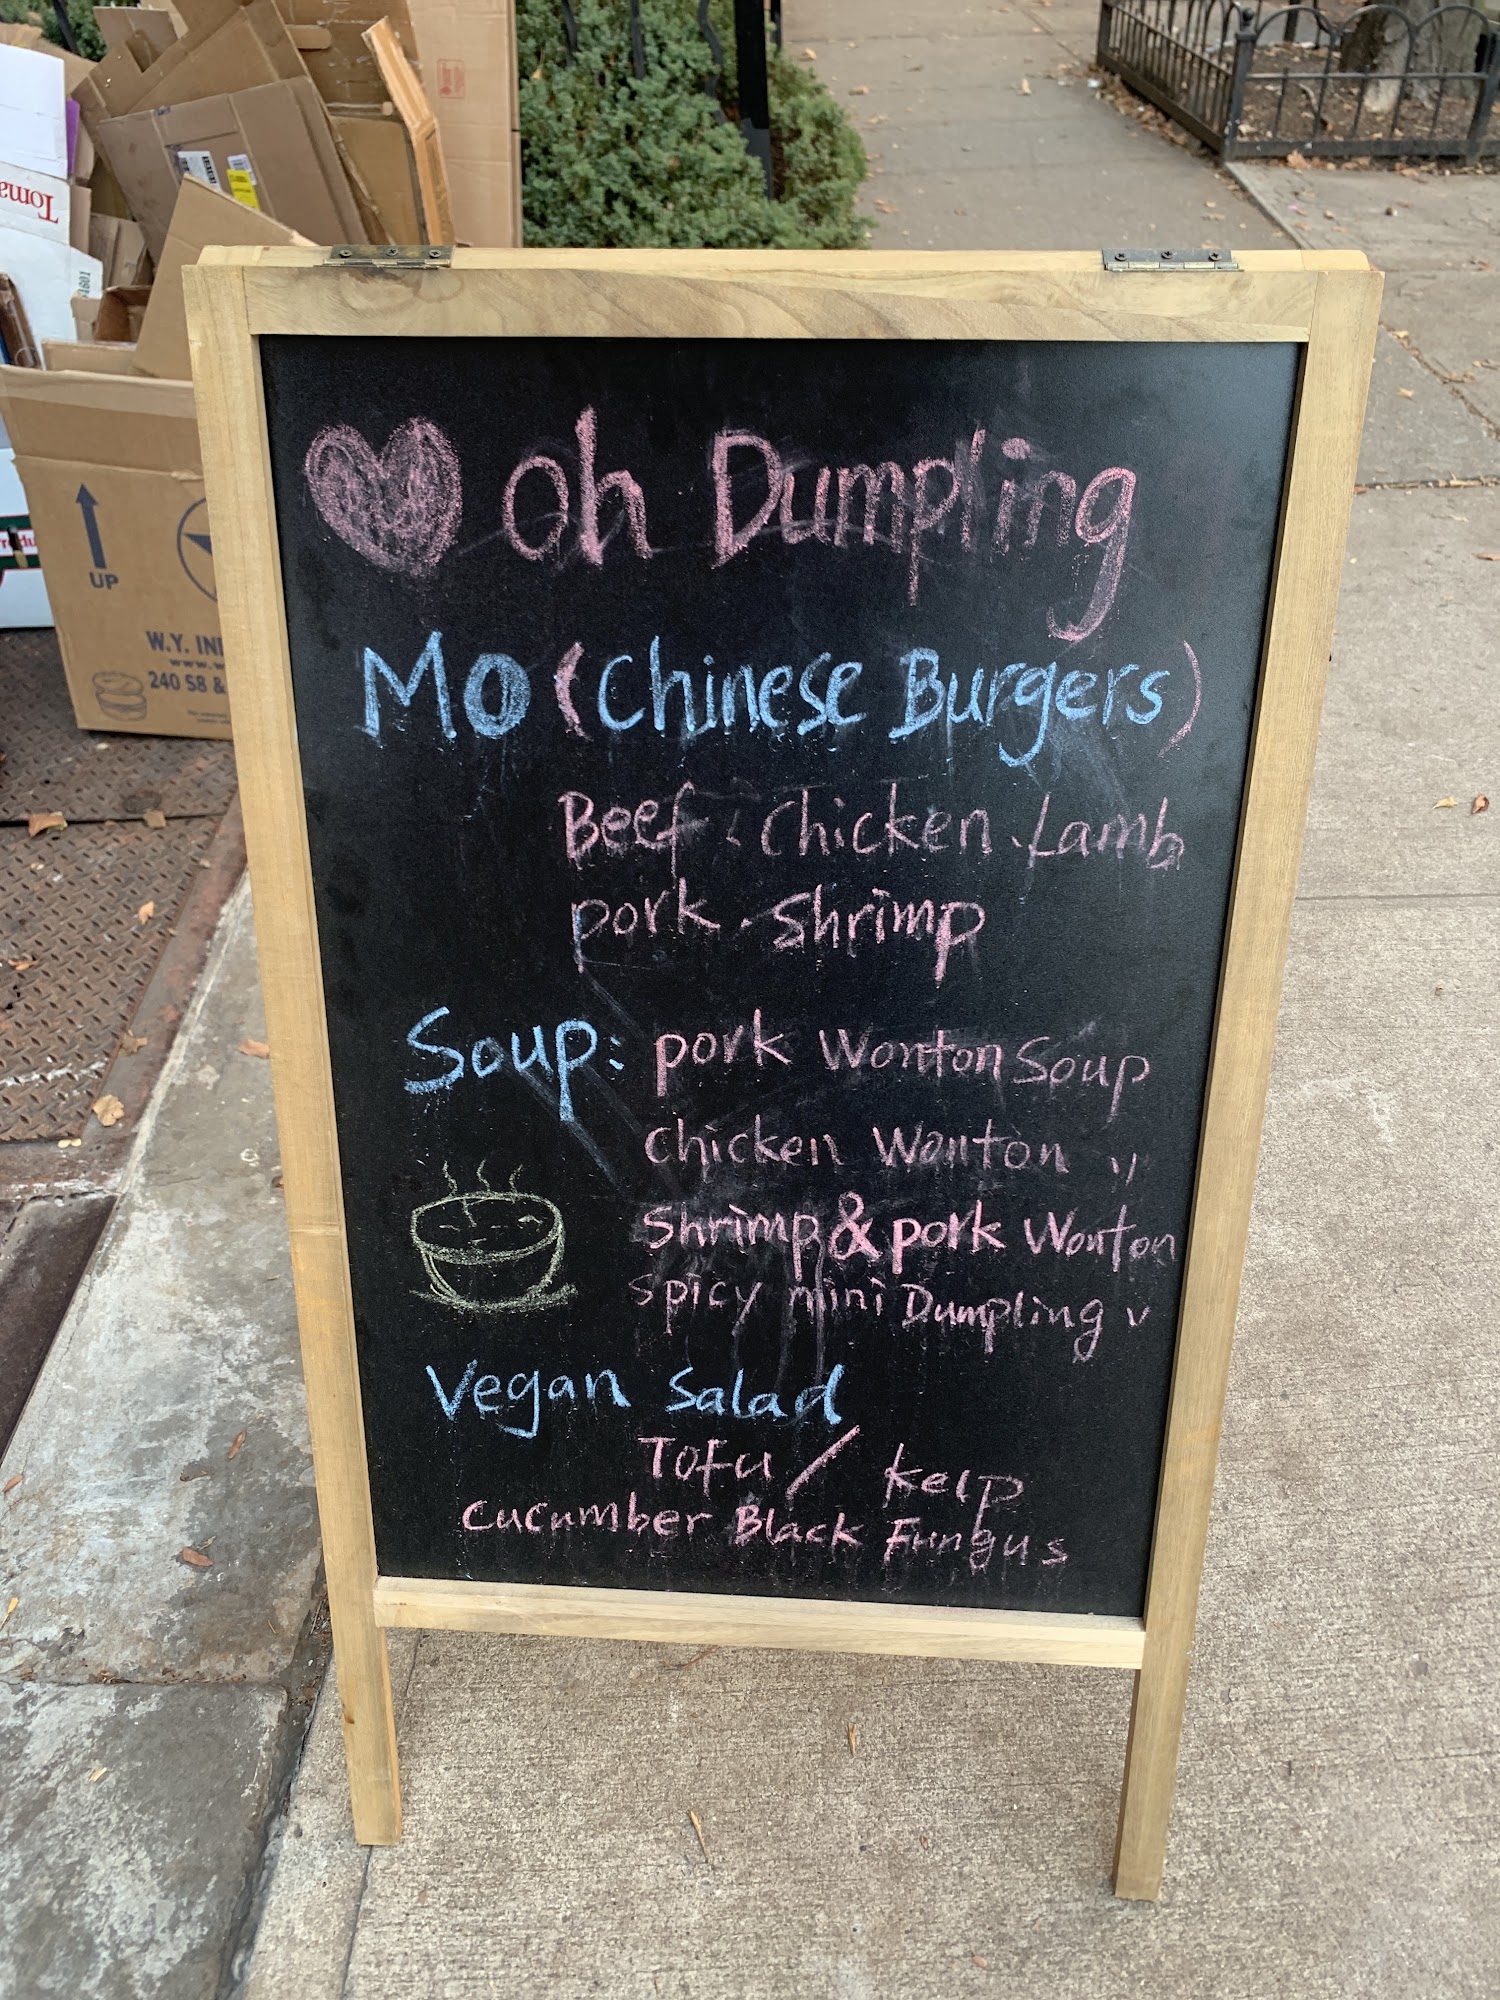 Oh Dumpling
Mo (Chinese Burgers)
Beef. Chicken. Lamb
pork. Shrimp
Soup: pork Wonton Soup
Chicken Wonton 〃
Shrimp & pork Wonton
Spicy mini Dumpling 〃
Vegan Salad
Tofu / kelp
Cucumber Black Fungus
Toma
UP
W.Y. IN
www.w
240 S8 &